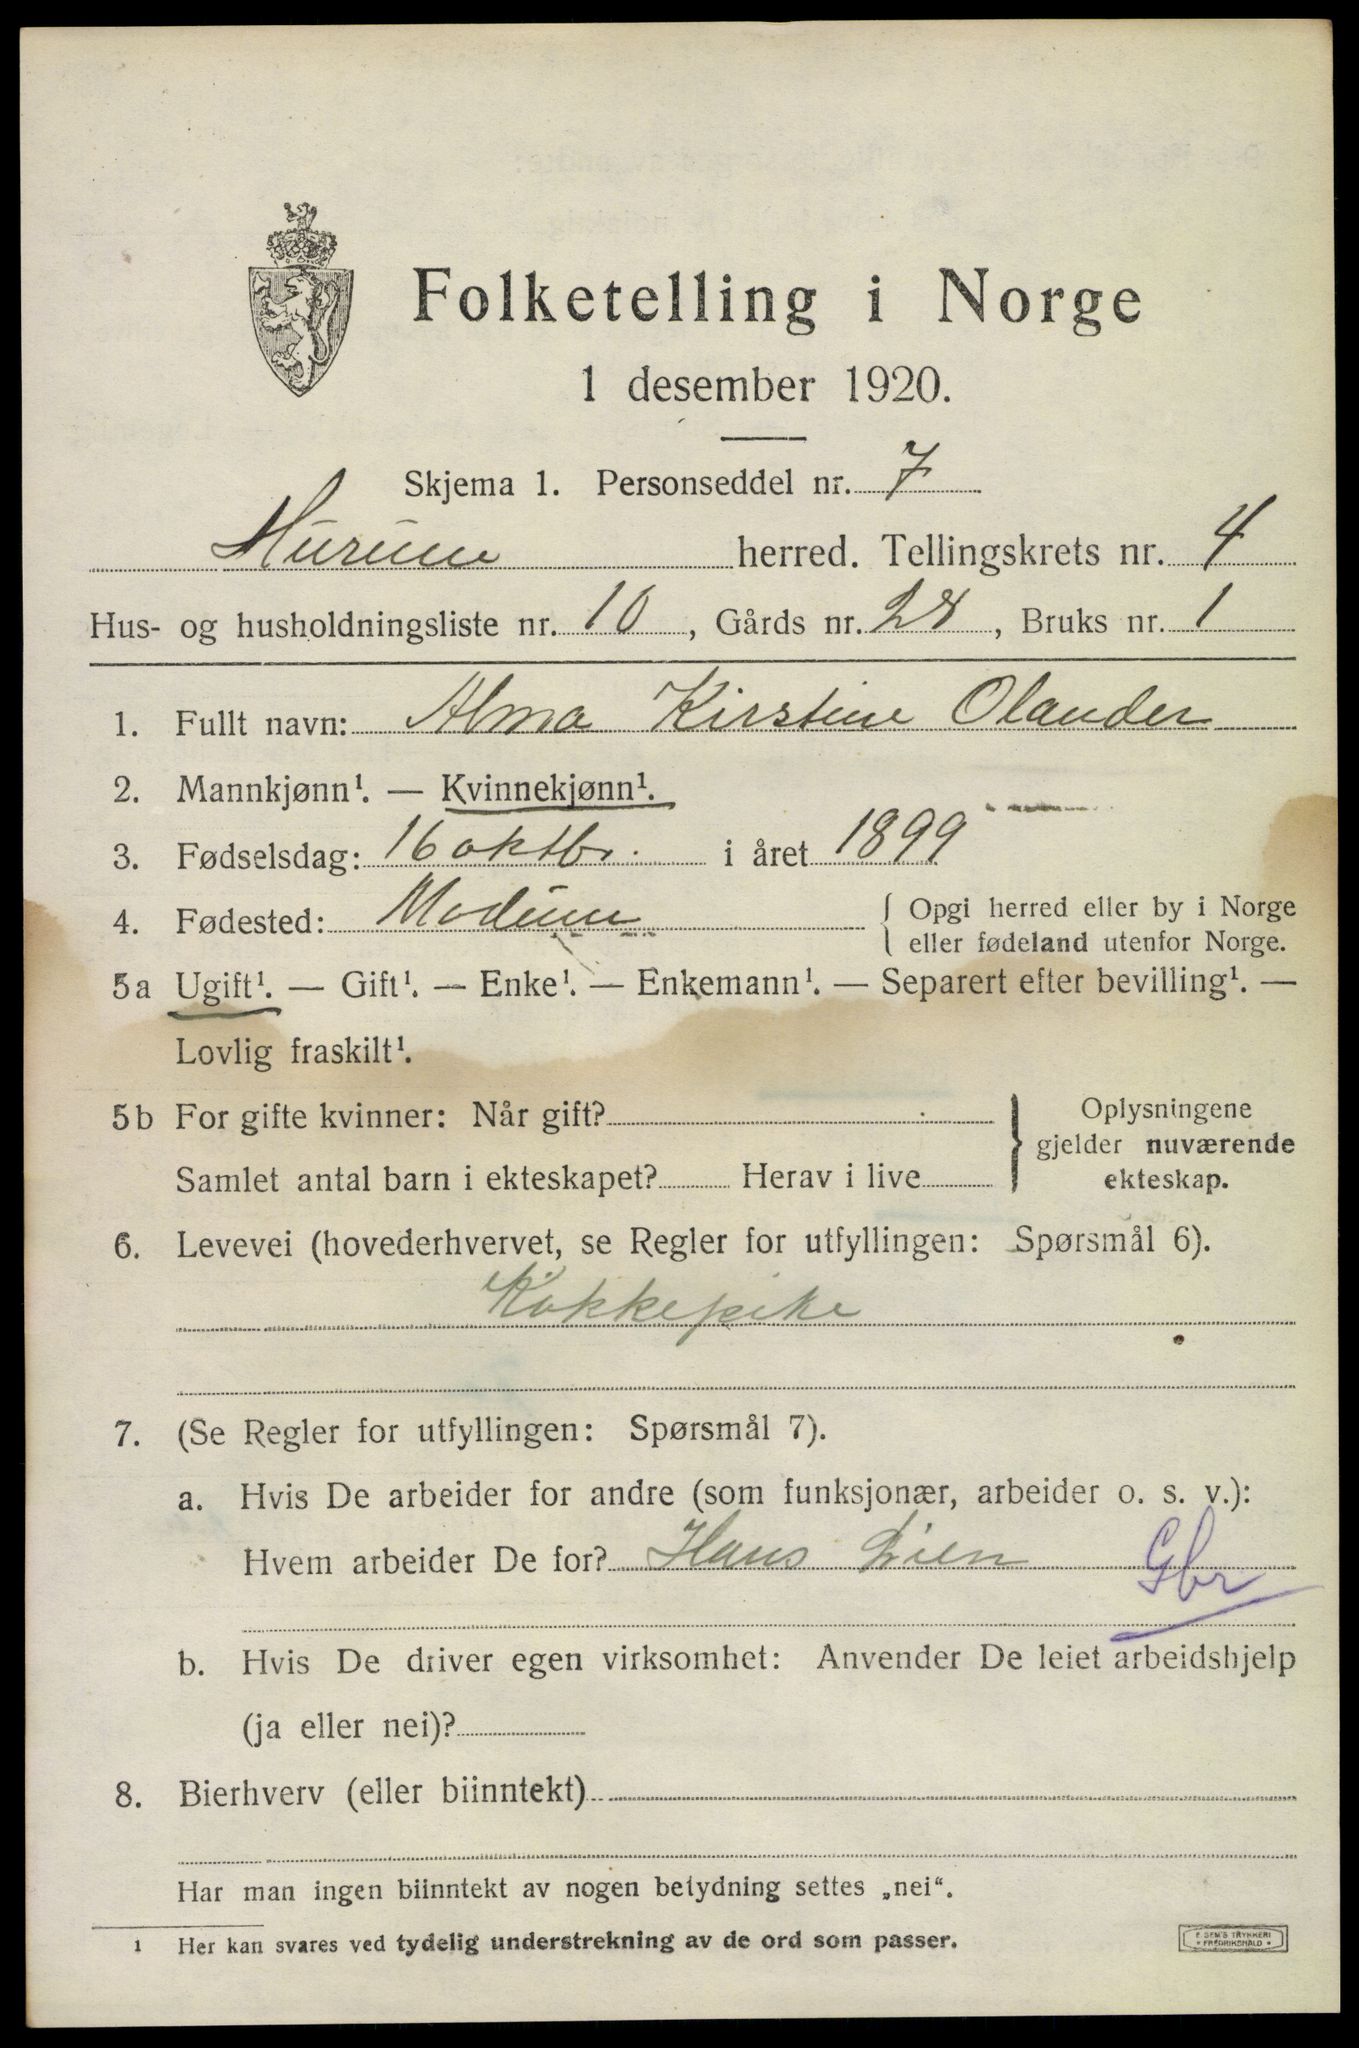 Folketelling i Norge
1 desember 1920.
Skjema 1. Personseddel nr. 7
Hurum herred. Tellingskrets nr. 4
Hus- og husholdningsliste nr. 10, Gårds nr. 28, Bruks nr. 1
1. Fullt navn: Alma Kirstine Olander
2. Mannkjønn¹. — Kvinnekjønn¹.
3. Fødselsdag: 16 oktbr. i året 1899
4. Fødested: Modum { Opgi herred eller by i Norge
eller fødeland utenfor Norge.
5a Ugift¹. — Gift¹. — Enke¹. — Enkemann¹. — Separert efter bevilling¹. —
Lovlig fraskilt¹.
5b For gifte kvinner: Når gift?
Samlet antal barn i ekteskapet? Herav i live
} Oplysningene
gjelder nuværende
ekteskap.
6. Levevei (hovederhvervet, se Regler for utfyllingen: Spørsmål 6).
Kokkepike
7. (Se Regler for utfyllingen: Spørsmål 7).
a. Hvis De arbeider for andre (som funksjonær, arbeider o. s. v.):
Hvem arbeider De for? Hans Lien Gbr
b. Hvis De driver egen virksomhet: Anvender De leiet arbeidshjelp
(ja eller nei)?
8. Bierhverv (eller biinntekt)
Har man ingen biinntekt av nogen betydning settes „nei“.
1 Her kan svares ved tydelig understrekning av de ord som passer.
E. SEM'S TRYKKERI
• FREDRIKSHALD •